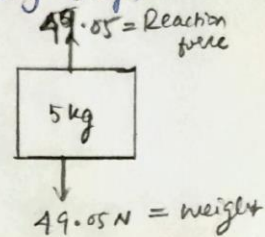 49.05 = Reaction
force
5kg
49.05 N = weight